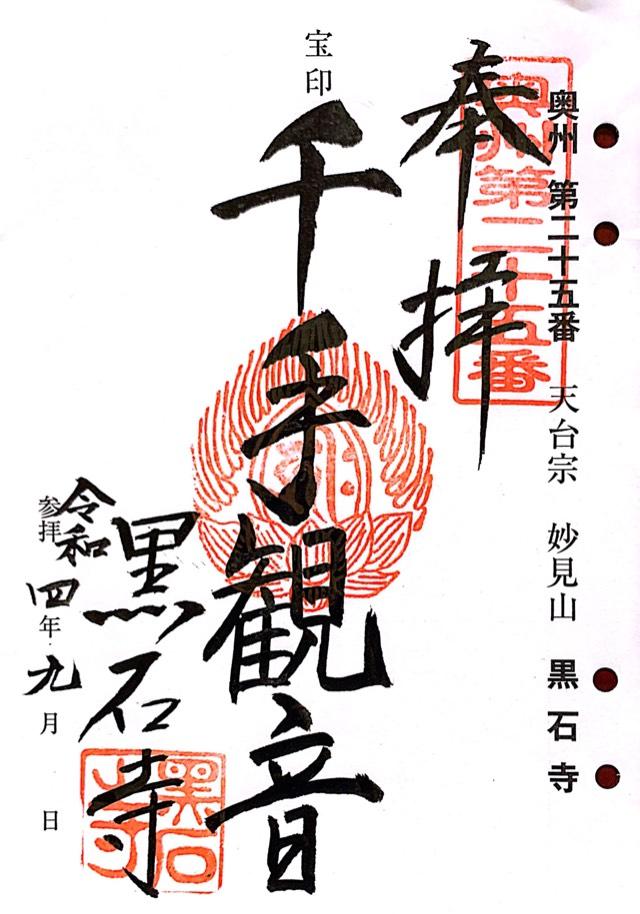 奥州 第二十五番 天台宗 妙見山 黒石寺
奥州第二十五番
奉拝
宝印
千手観音
黒石寺
黒石寺
参拝 令和四年九月 日